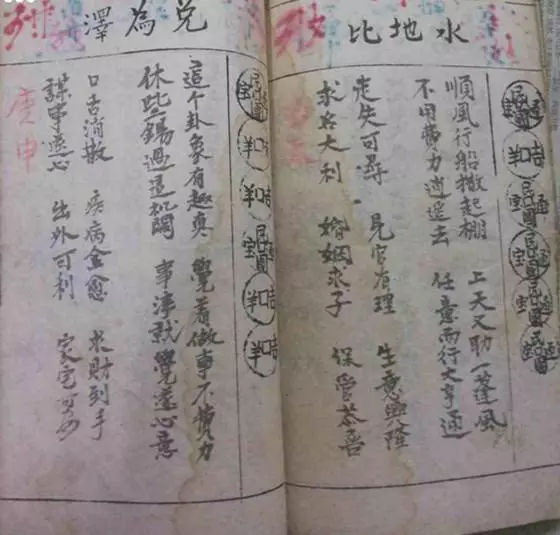 水地比
順風行船撒起棚 上天又助一蓬風
不用費力逍遥去 任意而行大亨通
走失可尋 見官有理 生意興隆
求名大利 婚姻求子 保管恭喜
兌為澤
這个卦象有趣真 覺着做事不費力
休些錫過這机関 事就覺遠心意
口舌消散 疾病全愈 求財到手
謀事遠心 出外可利 家宅可
庚申